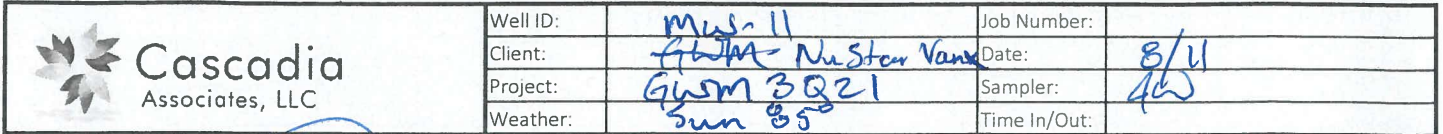 Cascadia
Associates, LLC
Well ID: MW-11 Job Number:
Client: GWM NuStar Vanx Date: 8/11
Project: GWM 3Q21 Sampler:
Weather: Sun 85° Time In/Out: